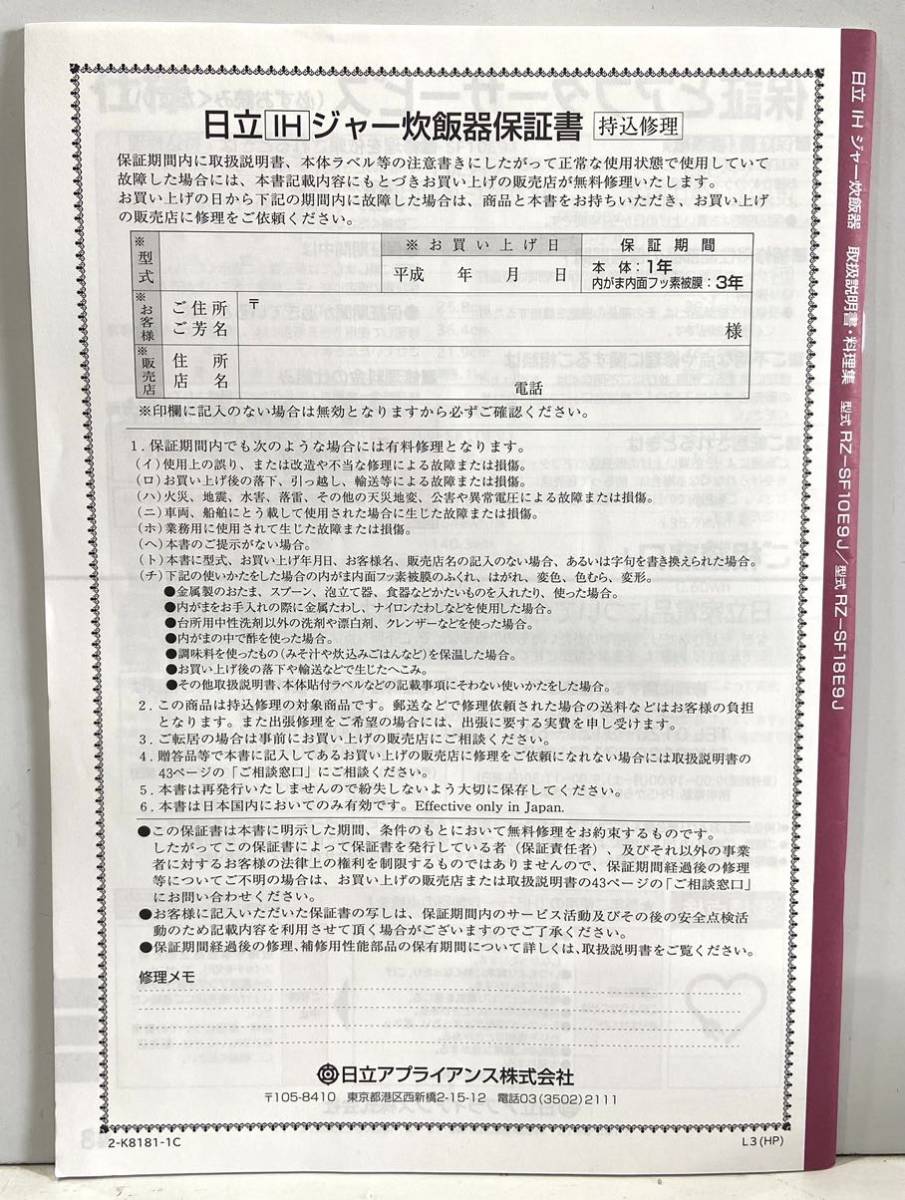 日立 IH ジャー炊飯器保証書 持込修理
保証期間内に取扱説明書、本体ラベル等の注意書きにしたがって正常な使用状態で使用していて
故障した場合には、本書記載内容にもとづきお買い上げの販売店が無料修理いたします。
お買い上げの日から下記の期間内に故障した場合は、商品と本書をお持ちいただき、お買い上げ
の販売店に修理をご依頼ください。
※型式
※お買い上げ日 保証期間
平成 年 月 日 本体：1年
内がま内面フッ素被膜：3年
※お客様
ご住所 〒
ご芳名 様
※販売店
住所
店名 電話
※印欄に記入のない場合は無効となりますから必ずご確認ください。
1．保証期間内でも次のような場合には有料修理となります。
（イ）使用上の誤り、または改造や不当な修理による故障または損傷。
（ロ）お買い上げ後の落下、引っ越し、輸送等による故障または損傷。
（ハ）火災、地震、水害、落雷、その他の天災地変、公害や異常電圧による故障または損傷。
（ニ）車両、船舶にとう載して使用された場合に生じた故障または損傷。
（ホ）業務用に使用されて生じた故障または損傷。
（ヘ）本書のご提示がない場合。
（ト）本書に型式、お買い上げ年月日、お客様名、販売店名の記入のない場合、あるいは字句を書き換えられた場合。
（チ）下記の使いかたをした場合の内がま内面フッ素被膜のふくれ、はがれ、変色、色むら、変形。
●金属製のおたま、スプーン、泡立て器、食器などかたいものを入れたり、使った場合。
●内がまをお手入れの際に金属たわし、ナイロンたわしなどを使用した場合。
●台所用中性洗剤以外の洗剤や漂白剤、クレンザーなどを使った場合。
●内がまの中で酢を使った場合。
●調味料を使ったもの（みそ汁や炊込みごはんなど）を保温した場合。
●お買い上げ後の落下や輸送などで生じたへこみ。
●その他取扱説明書、本体貼付ラベルなどの記載事項にそわない使いかたをした場合。
2．この商品は持込修理の対象商品です。郵送などで修理依頼された場合の送料などはお客様の負担
となります。また出張修理をご希望の場合には、出張に要する実費を申し受けます。
3．ご転居の場合は事前にお買い上げの販売店にご相談ください。
4．贈答品等で本書に記入してあるお買い上げの販売店に修理をご依頼になれない場合には取扱説明書の
43ページの「ご相談窓口」にご相談ください。
5．本書は再発行いたしませんので紛失しないよう大切に保存してください。
6．本書は日本国内においてのみ有効です。Effective only in Japan.
●この保証書は本書に明示した期間、条件のもとにおいて無料修理をお約束するものです。
したがってこの保証書によって保証書を発行している者（保証責任者）、及びそれ以外の事業
者に対するお客様の法律上の権利を制限するものではありませんので、保証期間経過後の修理
等についてご不明の場合は、お買い上げの販売店または取扱説明書の43ページの「ご相談窓口」
にお問い合わせください。
●お客様に記入いただいた保証書の写しは、保証期間内のサービス活動及びその後の安全点検活
動のため記載内容を利用させて頂く場合がございますのでご了承ください。
●保証期間経過後の修理、補修用性能部品の保有期間について詳しくは、取扱説明書をご覧ください。
修理メモ
日立アプライアンス株式会社
〒105-8410 東京都港区西新橋2-15-12 電話03(3502)2111
2-K8181-1C
L3(HP)
日立 IH ジャー炊飯器 取扱説明書・料理集 型式 RZ-SF10E9J／型式 RZ-SF18E9J